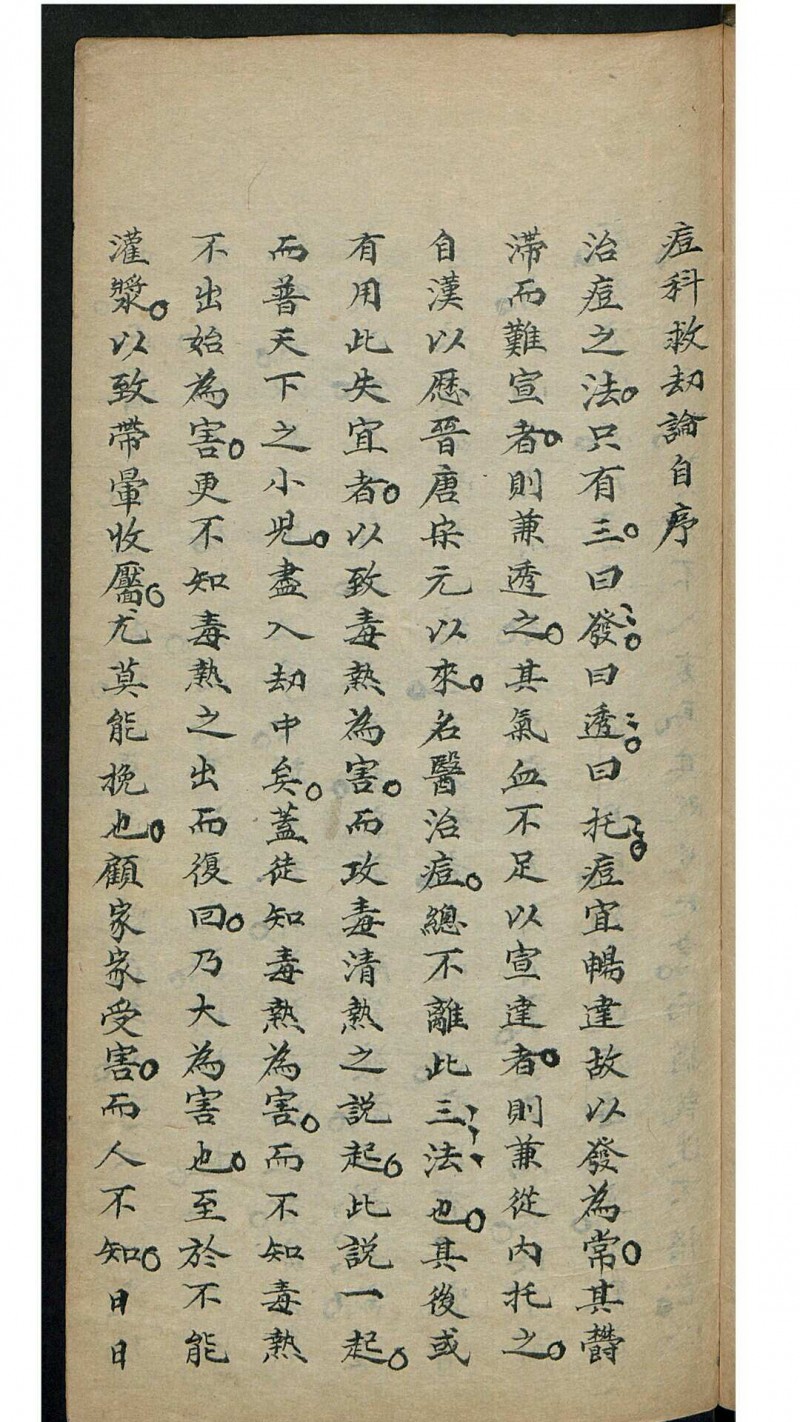 痘科救劫論自序
治痘之法。只有三。曰發。曰透。曰托。痘宜暢達故以發為常。其欝
滯而難宣者。則兼透之。其氣血不足以宣達者。則兼從内托之。
自漢以厯晉唐宋元以來。名醫治痘。總不離此三法也。其後或
有用此失宜者。以致毒熱為害。而攻毒清熱之説起。此説一起。
而普天下之小児。盡入劫中矣。蓋徒知毒熱為害。而不知毒熱
不出始為害。更不知毒熱之出而復回。乃大為害也。至於不能
灌漿。以致帶暈收靨。尤莫能挽也。顧家家受害。而人不知。日日